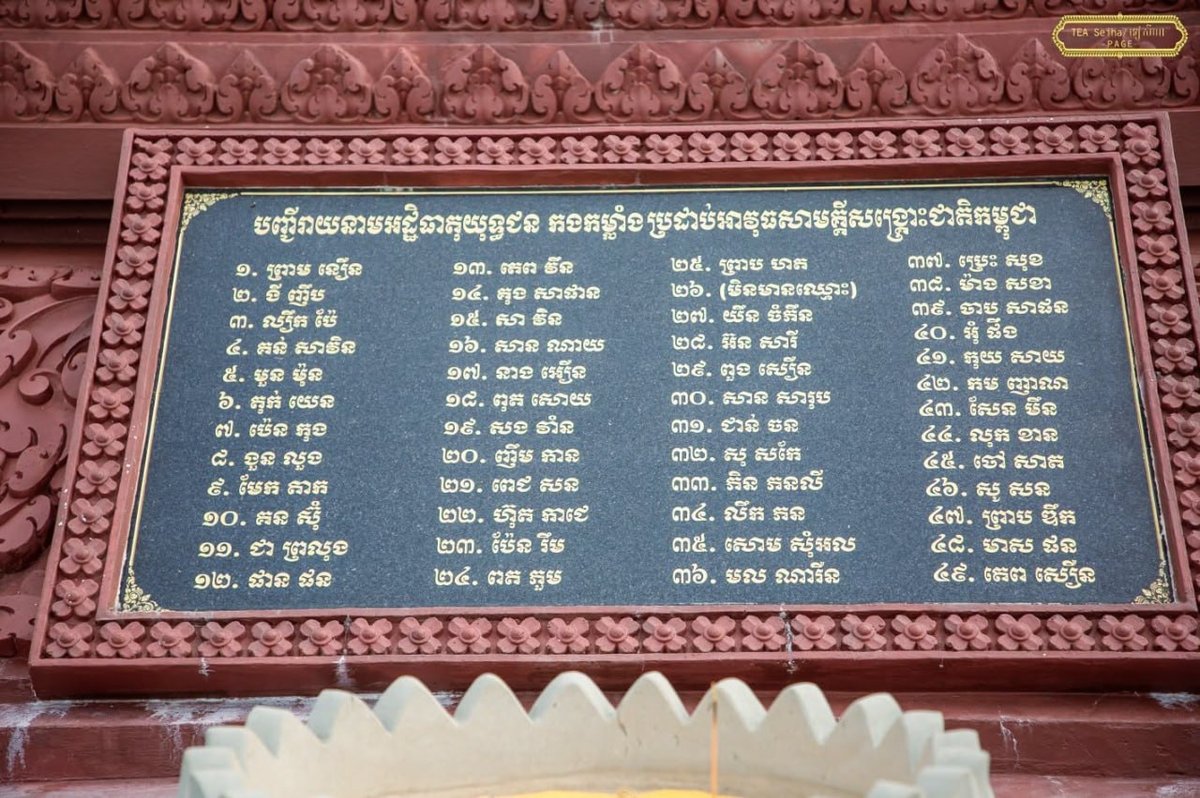 TEA Seiha/ទៀ សីហា
-PAGE-
បញ្ជីរាយនាមអដ្ឋិធាតុយុទ្ធជន កងកម្លាំងប្រដាប់អាវុធសាមគ្គីសង្គ្រោះជាតិកម្ពុជា
១. ព្រាម នឿន
២. ងី ញឹប
៣. ល្បឹក ប៉ែ
៤. គន់ សាវិន
៥. មួន ម៉ុន
៦. តុក់ យេន
៧. ប៉េន កុង
៨. ងួន លួង
៩. មែក តាក
១០. គន ស៊ុំ
១១. ជា ព្រលុង
១២. ផាន ផន
១៣. តេព វ៉ឹន
១៤. គូង សាផាន
១៥. សា វិន
១៦. សាន ណាយ
១៧. នាង អឿន
១៨. ពុត សោយ
១៩. សង វ៉ាំន
២០. ញឹម កាន
២១. ពេជ សន
២២. ហ៊ុត កាជេ
២៣. ប៉ែន រឹម
២៤. ពត ភួម
២៥. ព្រាប ហត
២៦. (មិនមានឈ្មោះ)
២៧. យ៉ន ចំកឹន
២៨. អ៊ន សារី
២៩. ពួង សឿន
៣០. សាន សារុប
៣១. ជាន់ ចន
៣២. សុ សកែ
៣៣. កិន ភនលី
៣៤. លឹក ភន
៣៥. សោម ស៊ុំអល
៣៦. មល ណារ៉ន
៣៧. ប្រេះ សុខ
៣៨. ម៉ាង សខា
៣៩. ចាប សាផន
៤០. អ៊ុំ ផឹង
៤១. កុយ សាយ
៤២. កម ញាណ
៤៣. សែន មឹន
៤៤. លុក ខាន
៤៥. ចៅ សាត
៤៦. សូ សន
៤៧. ព្រាប ឌឹក
៤៨. មាស ផន
៤៩. តេព សឿន